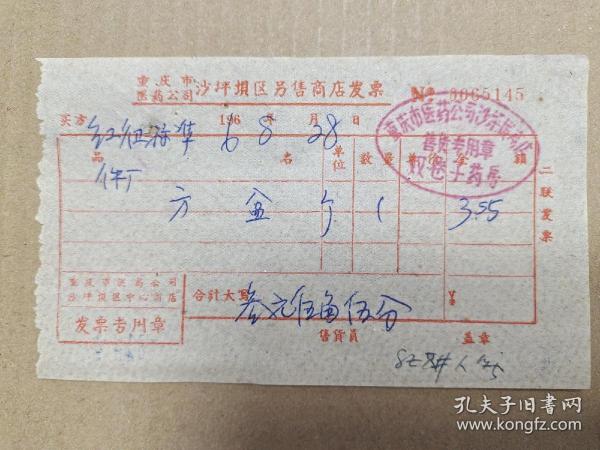 重庆市
医药公司 沙坪垻区另售商店发票 № 0065145
买方 红卫标准 196 6 年 8 月 28 日
件厂
品名 单位 数量 单价 金额
方盆 个 1 3.55
二联发票
重庆市医药公司沙坪坝商店
售货专用章
双巷子药房
重庆市医药公司
沙坪垻区中心商店
发票专用章
合計大写 叁元伍角伍分 ¥
售貨員 盖章
孔夫子旧书网
www.kongfz.com